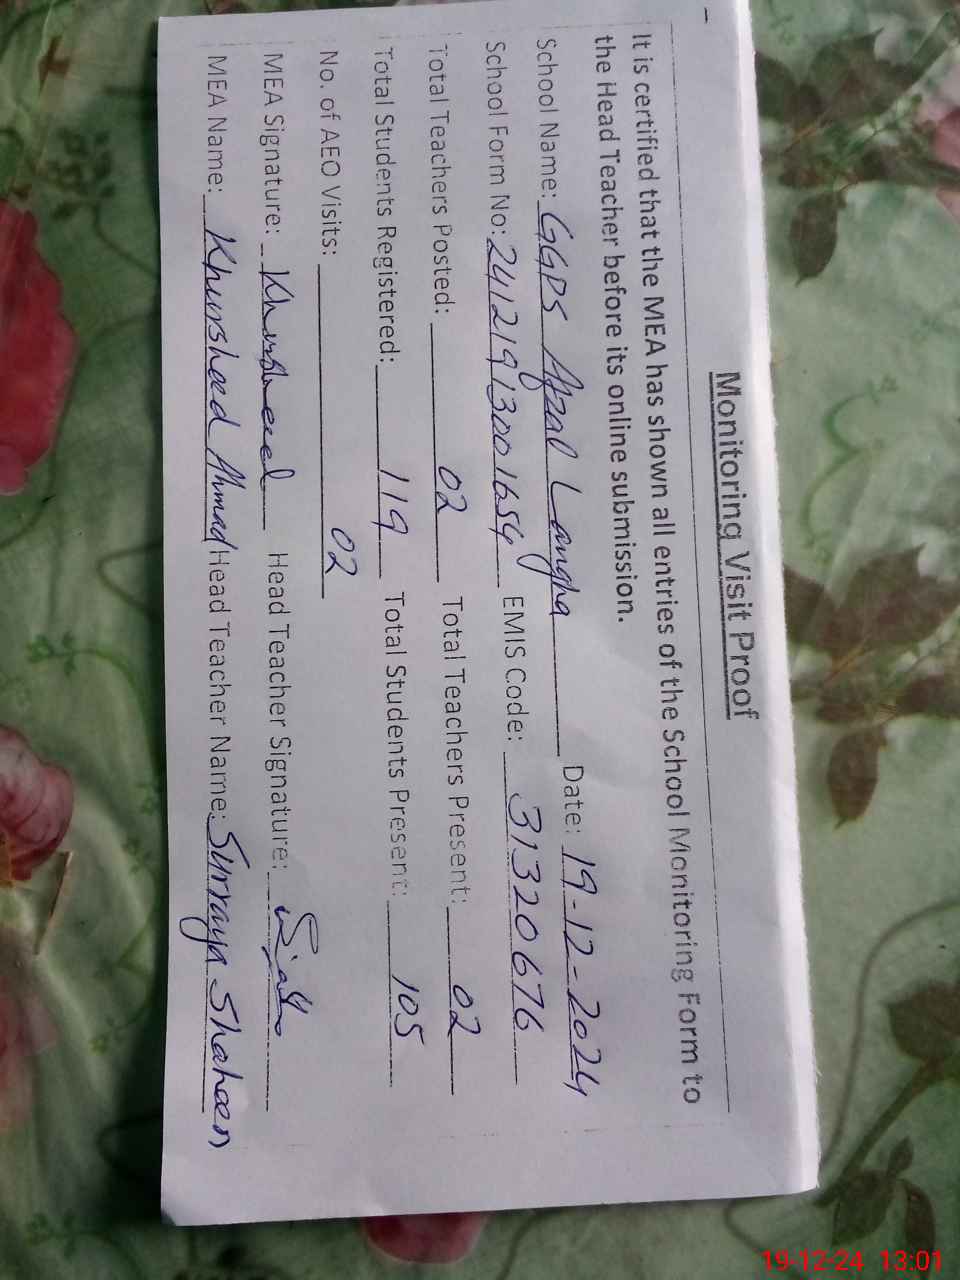 Monitoring Visit Proof
It is certified that the MEA has shown all entries of the School Monitoring Form to
the Head Teacher before its online submission.
School Name: GGPS Afzal Langha Date: 19-12-2024
School Form No: 24121913001654 EMIS Code: 31320676
Total Teachers Posted: 02 Total Teachers Present: 02
Total Students Registered: 119 Total Students Present: 105
No. of AEO Visits: 02
MEA Signature: Khursheed Head Teacher Signature:
MEA Name: Khursheed Ahmad Head Teacher Name: Surraya Shaheen
19-12-24 13:01